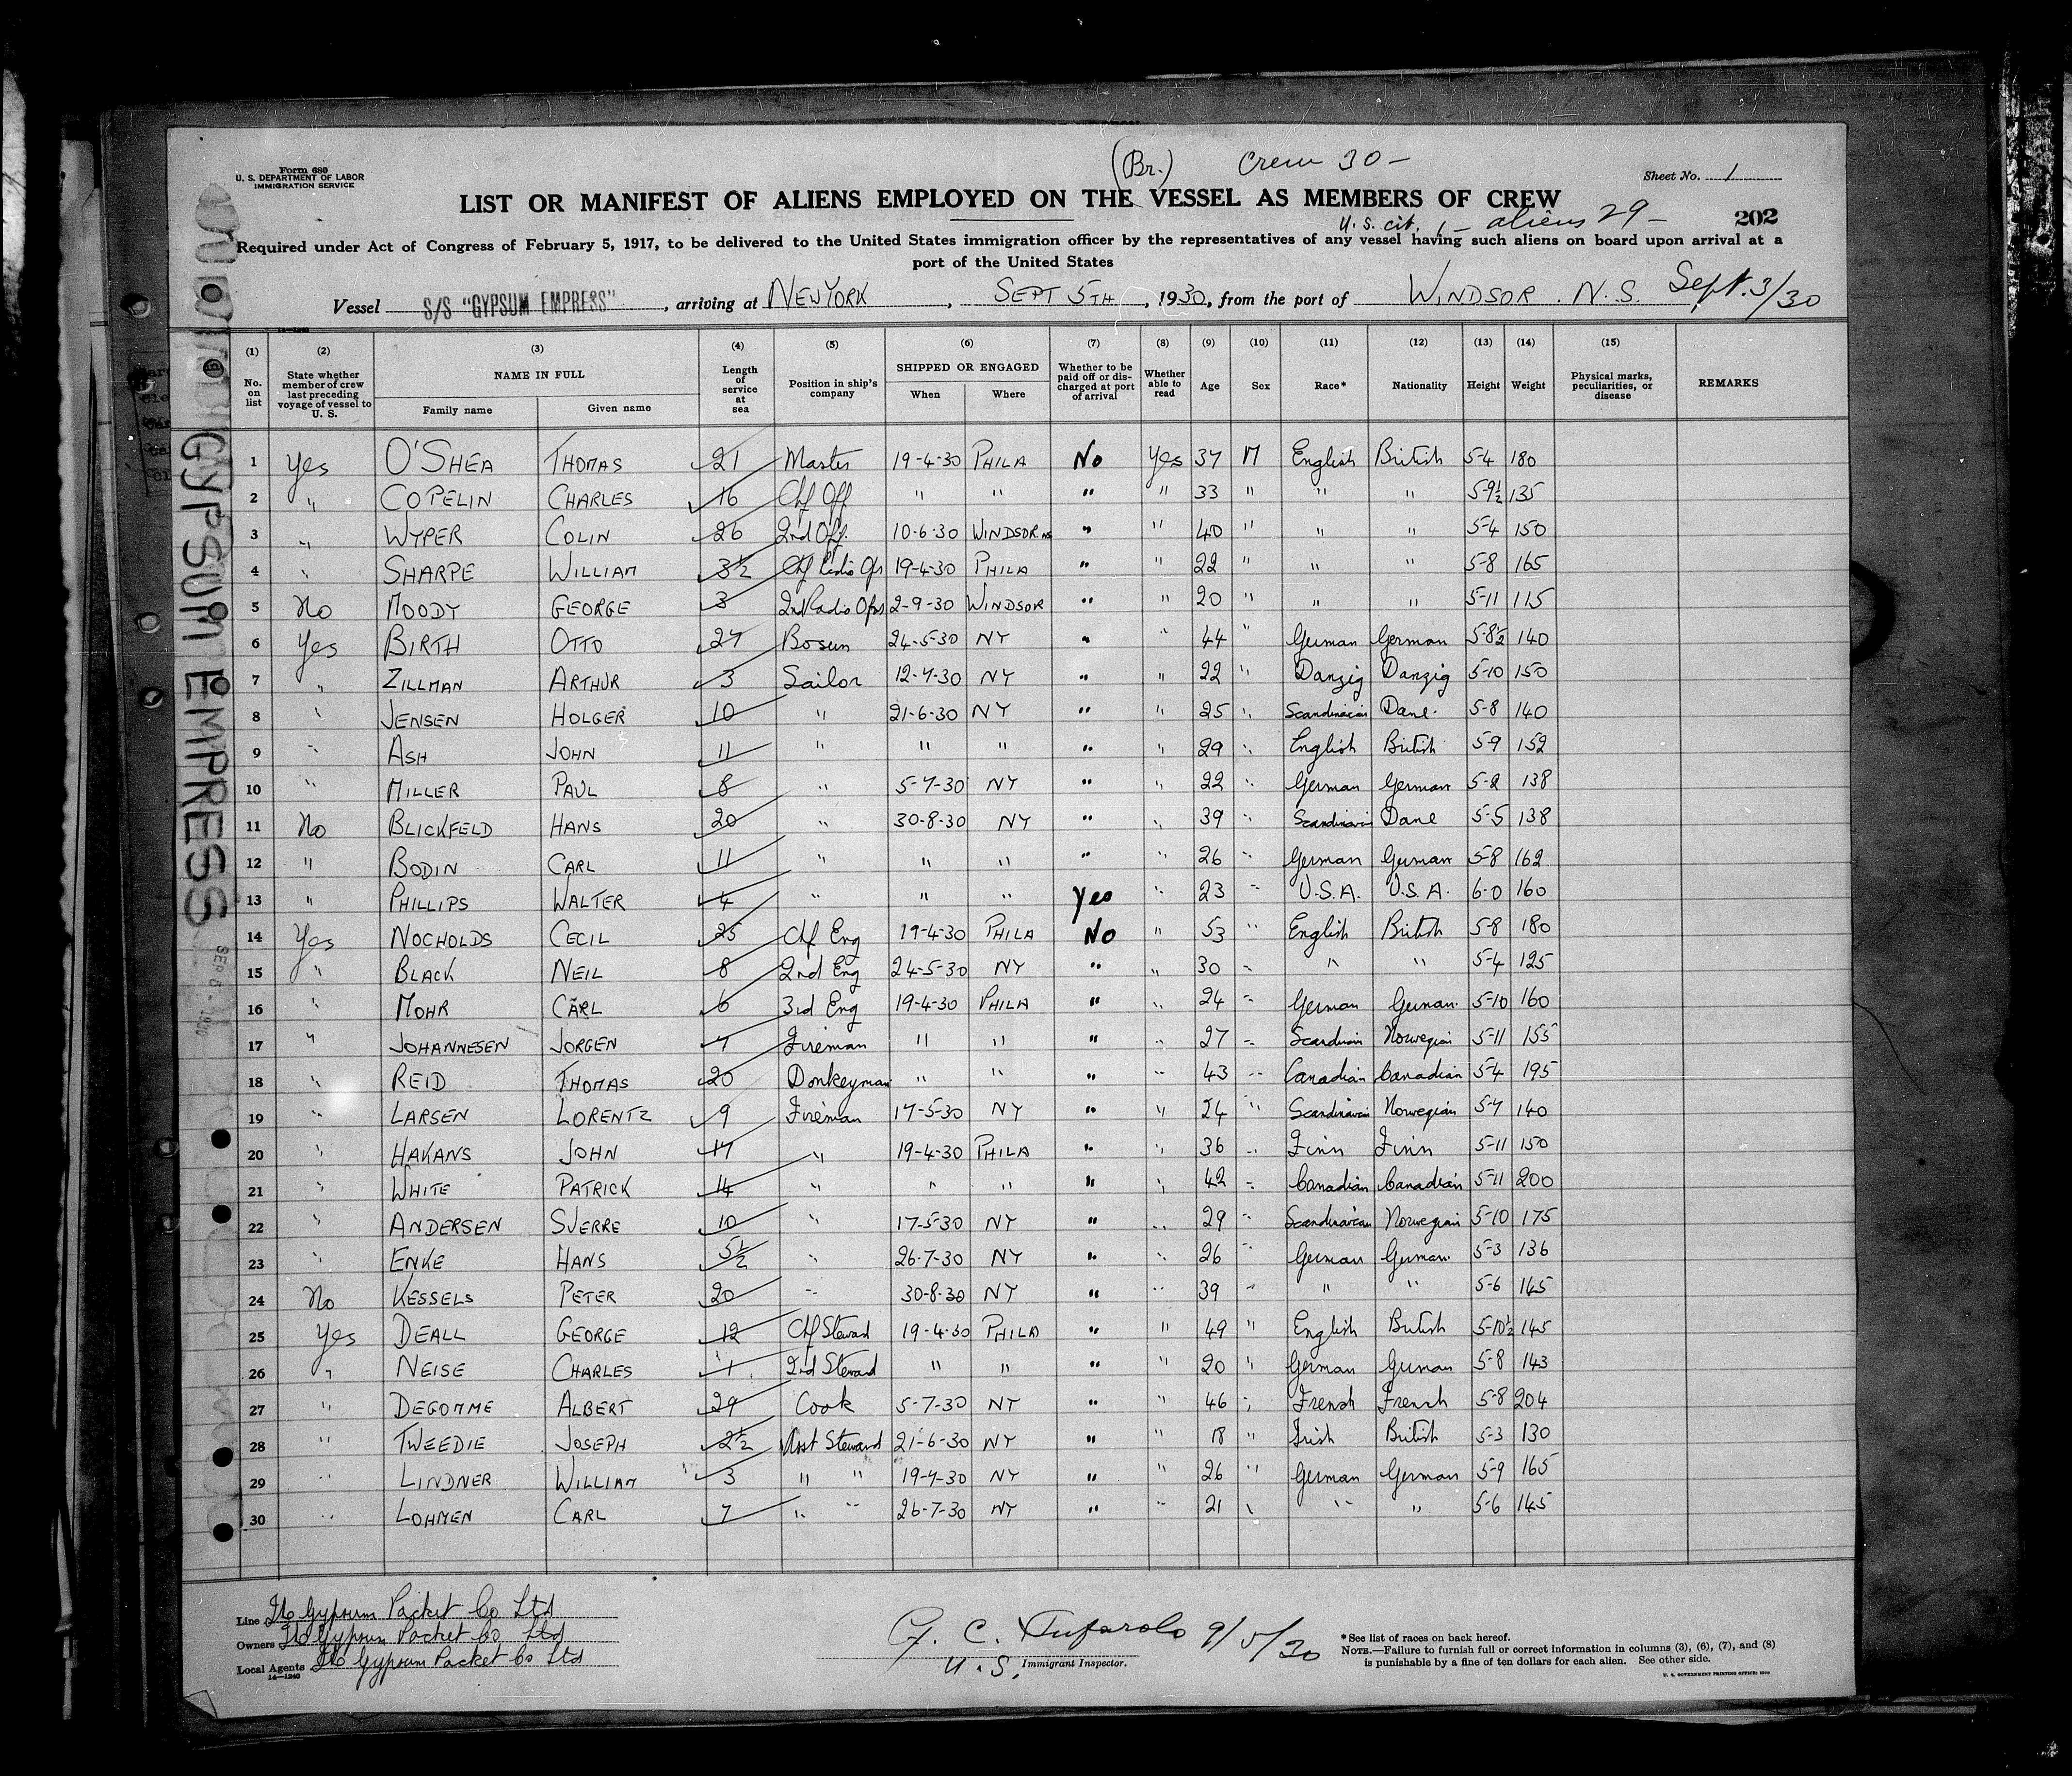 (Br.) Crew 30 –
Form 680
U. S. DEPARTMENT OF LABOR
IMMIGRATION SERVICE
Sheet No. 1
LIST OR MANIFEST OF ALIENS EMPLOYED ON THE VESSEL AS MEMBERS OF CREW
U. S. cit. 1 – aliens 29 –
202
Required under Act of Congress of February 5, 1917, to be delivered to the United States immigration officer by the representatives of any vessel having such aliens on board upon arrival at a
port of the United States
Vessel S/S "GYPSUM EMPRESS", arriving at NEW YORK, SEPT 5TH, 1930, from the port of WINDSOR. N.S. Sept. 3/30
(1) (2) (3) (4) (5) (6) (7) (8) (9) (10) (11) (12) (13) (14) (15)
No. on list | State whether member of crew last preceding voyage of vessel to U. S. | NAME IN FULL | Family name | Given name | Length of service at sea | Position in ship's company | SHIPPED OR ENGAGED | When | Where | Whether to be paid off or discharged at port of arrival | Whether able to read | Age | Sex | Race* | Nationality | Height | Weight | Physical marks, peculiarities, or disease | REMARKS
1 Yes O'SHEA THOMAS 21 Master 19-4-30 PHILA No Yes 37 M English British 5-4 180
2 " COPELIN CHARLES 16 Chf Off " " " " 33 " " " 5-9½ 135
3 " WYPER COLIN 26 2nd Off. 10-6-30 WINDSOR NS " " 40 " " " 5-4 150
4 " SHARPE WILLIAM 3½ Chf Radio Opr 19-4-30 PHILA " " 22 " " " 5-8 165
5 No MOODY GEORGE 3 2nd Radio Opr 2-9-30 WINDSOR " " 20 " " " 5-11 115
6 Yes BIRTH OTTO 27 Bosun 24-5-30 NY " " 44 " German German 5-8½ 140
7 " ZILLMAN ARTHUR 3 Sailor 12-7-30 NY " " 22 " Danzig Danzig 5-10 150
8 " JENSEN HOLGER 10 " 21-6-30 NY " " 25 " Scandinavian Dane. 5-8 140
9 " ASH JOHN 11 " " " " " 29 " English British 5-9 152
10 " MILLER PAUL 8 " 5-7-30 NY " " 22 " German German 5-2 138
11 No BLICKFELD HANS 20 " 30-8-30 NY " " 39 " Scandinavi Dane 5-5 138
12 " BODIN CARL 11 " " " " " 26 " German German 5-8 162
13 " PHILLIPS WALTER 4 " " " Yes " 23 " U.S.A. U.S.A. 6-0 160
14 Yes NOCHOLDS CECIL 25 Chf Eng 19-4-30 PHILA No " 53 " English British 5-8 180
15 " BLACK NEIL 8 2nd Eng 24-5-30 NY " " 30 " " " 5-4 125
16 " MOHR CARL 6 3rd Eng 19-4-30 PHILA " " 24 " German German. 5-10 160
17 " JOHANNESEN JORGEN 7 Fireman " " " " 27 " Scandinavian Norwegian 5-11 155
18 " REID THOMAS 20 Donkeyman " " " " 43 " Canadian Canadian 5-4 195
19 " LARSEN LORENTZ 9 Fireman 17-5-30 NY " " 24 " Scandinavian Norwegian 5-7 140
20 " HAKANS JOHN 17 " 19-4-30 PHILA " " 36 " Finn Finn 5-11 150
21 " WHITE PATRICK 14 " " " " " 42 " Canadian Canadian 5-11 200
22 " ANDERSEN SJERRE 10 " 17-5-30 NY " " 29 " Scandinavian Norwegian 5-10 175
23 " ENKE HANS 5½ " 26-7-30 NY " " 26 " German German. 5-3 136
24 No KESSELS PETER 20 " 30-8-30 NY " " 39 " " " 5-6 145
25 Yes DEALL GEORGE 12 Chf Steward 19-4-30 PHILA " " 49 " English British 5-10½ 145
26 " NEISE CHARLES 1 2nd Steward " " " " 20 " German German 5-8 143
27 " DEGOMME ALBERT 29 Cook 5-7-30 NY " " 46 " French French 5-8 204
28 " TWEEDIE JOSEPH 2½ Asst Steward 21-6-30 NY " " 18 " Irish British 5-3 130
29 " LINDNER WILLIAM 3 " " 19-7-30 NY " " 26 " German German 5-9 165
30 " LOHMEN CARL 7 " " 26-7-30 NY " " 21 " " " 5-6 145
GYPSUM EMPRESS
SEP 8 - 1930
Line The Gypsum Packet Co Ltd
Owners The Gypsum Packet Co Ltd
Local Agents The Gypsum Packet Co Ltd
14—1240
G. C. Tufarolo 9/5/30
U. S. Immigrant Inspector.
*See list of races on back hereof.
NOTE.—Failure to furnish full or correct information in columns (3), (6), (7), and (8)
is punishable by a fine of ten dollars for each alien. See other side.
U. S. GOVERNMENT PRINTING OFFICE: